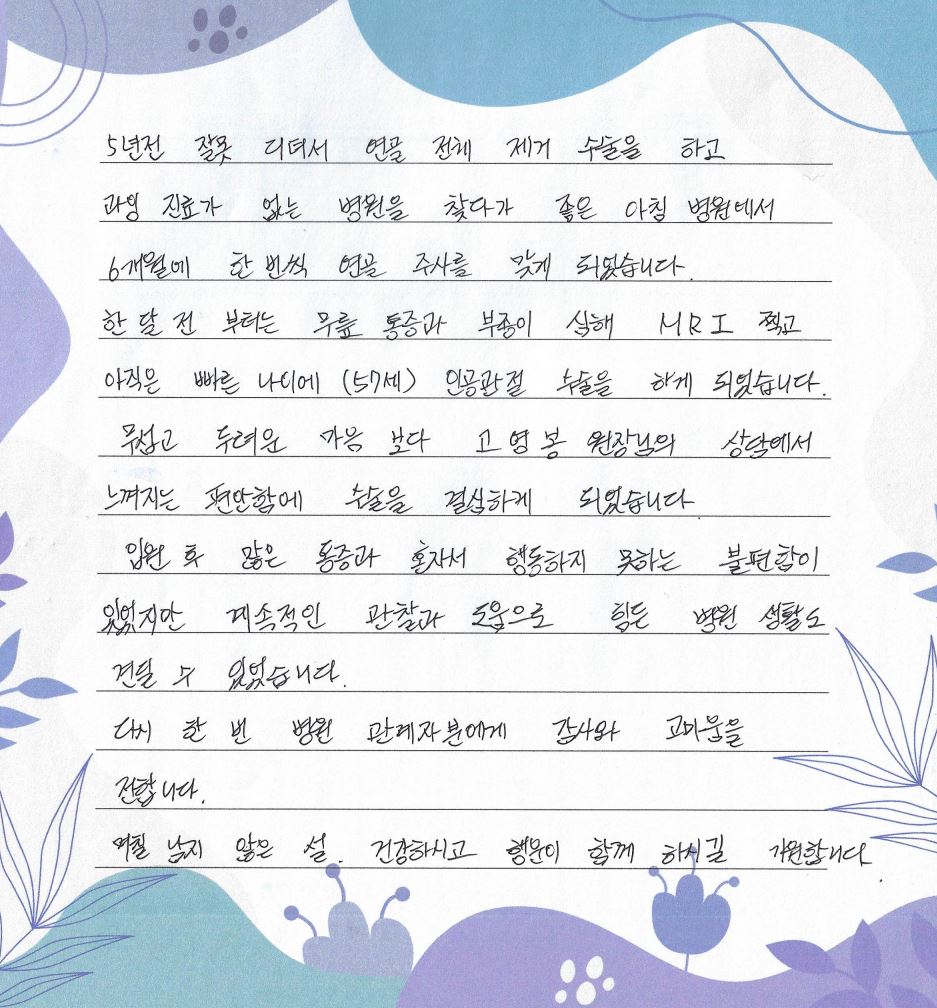 5년전 잘못 디뎌서 연골 전체 제거 수술을 하고
과잉 진료가 없는 병원을 찾다가 좋은 아침 병원에서
6개월에 한번씩 연골 주사를 맞게 되었습니다.
한 달 전 부터는 무릎 통증과 부종이 심해 MRI 찍고
아직은 빠른 나이에 (57세) 인공관절 수술을 하게 되었습니다.
무섭고 두려운 마음 보다 고영봉 원장님의 상담에서
느껴지는 편안함에 수술을 결심하게 되었습니다
입원 후 많은 통증과 혼자서 행동하지 못하는 불편함이
있었지만 계속적인 관찰과 도움으로 힘든 병원 생활도
견딜 수 있었습니다.
다시 한 번 병원 관계자분에게 감사와 고마움을
전합니다.
며칠 남지 않은 설. 건강하시고 행운이 함께 하시길 기원합니다.